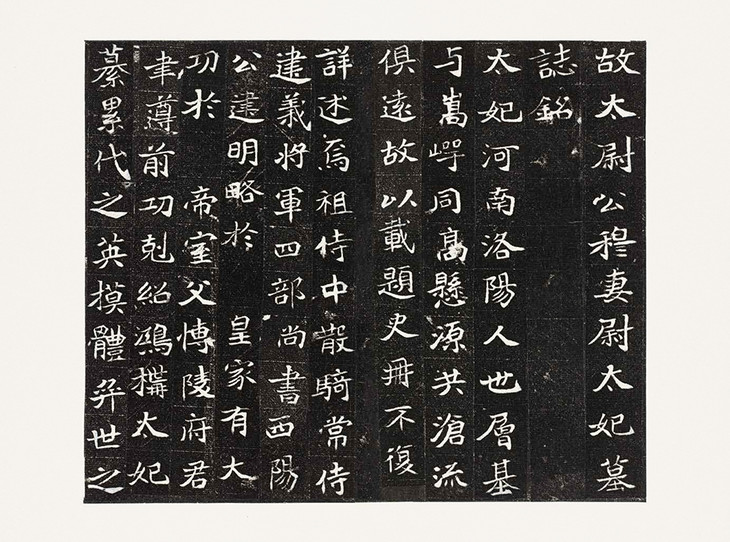 故太尉公穆妻尉太妃墓
誌銘
太妃河南洛陽人也層基
与嵩㟧同高懸源共滄流
俱遠故以載題史冊不復
詳述焉祖侍中散騎常侍
建義將軍四部尚書西陽
公建明略於 皇家有大
功於 帝室父博陵府君
聿遵前功剋紹鴻構太妃
纂累代之英摸體弈世之